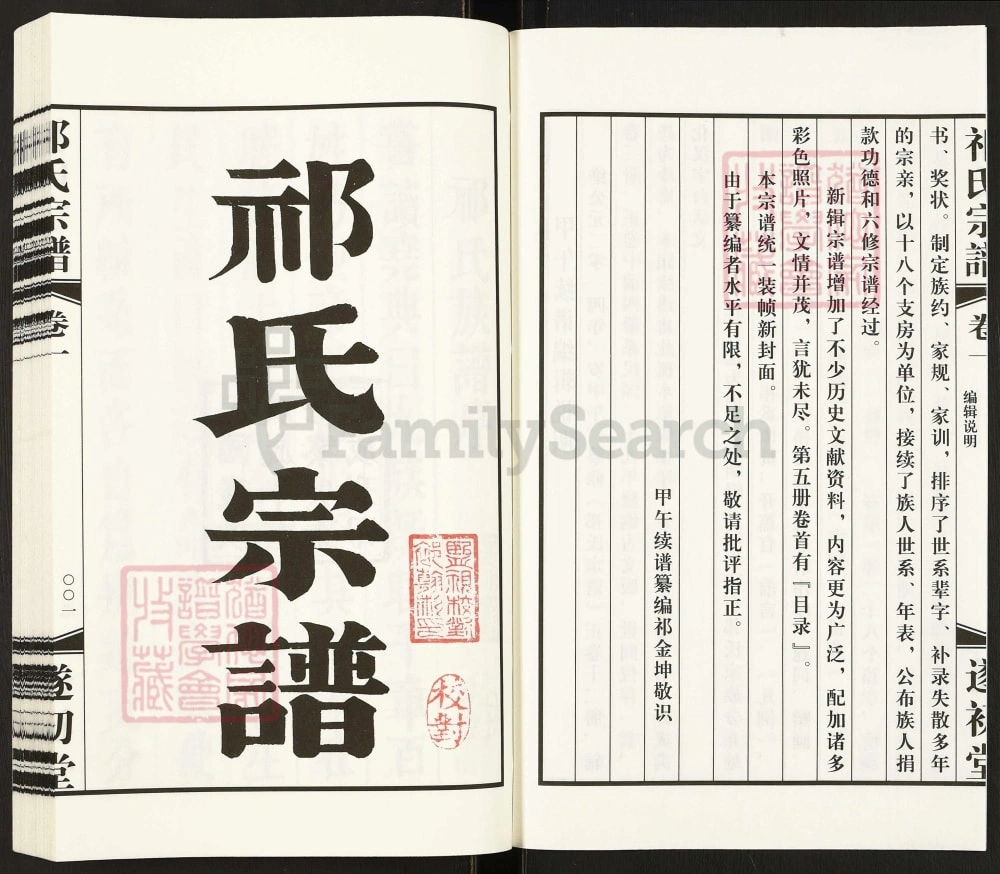 祁氏宗譜
卷一
编辑说明
遂初堂
书、奖状。制定族约、家规、家训，排序了世系辈字、补录失散多年
的宗亲，以十八个支房为单位，接续了族人世系、年表，公布族人捐
款功德和六修宗谱经过。
新辑宗谱增加了不少历史文献资料，内容更为广泛，配加诸多
彩色照片，文情并茂，言犹未尽。第五册卷首有『目录』。
本宗谱统一装帧新封面。
由于纂编者水平有限，不足之处，敬请批评指正。
甲午续谱纂编祁金坤敬识
祁氏宗譜
校對
譜學會
收藏
祁氏宗譜
卷一
〇〇一
遂初堂
FamilySearch